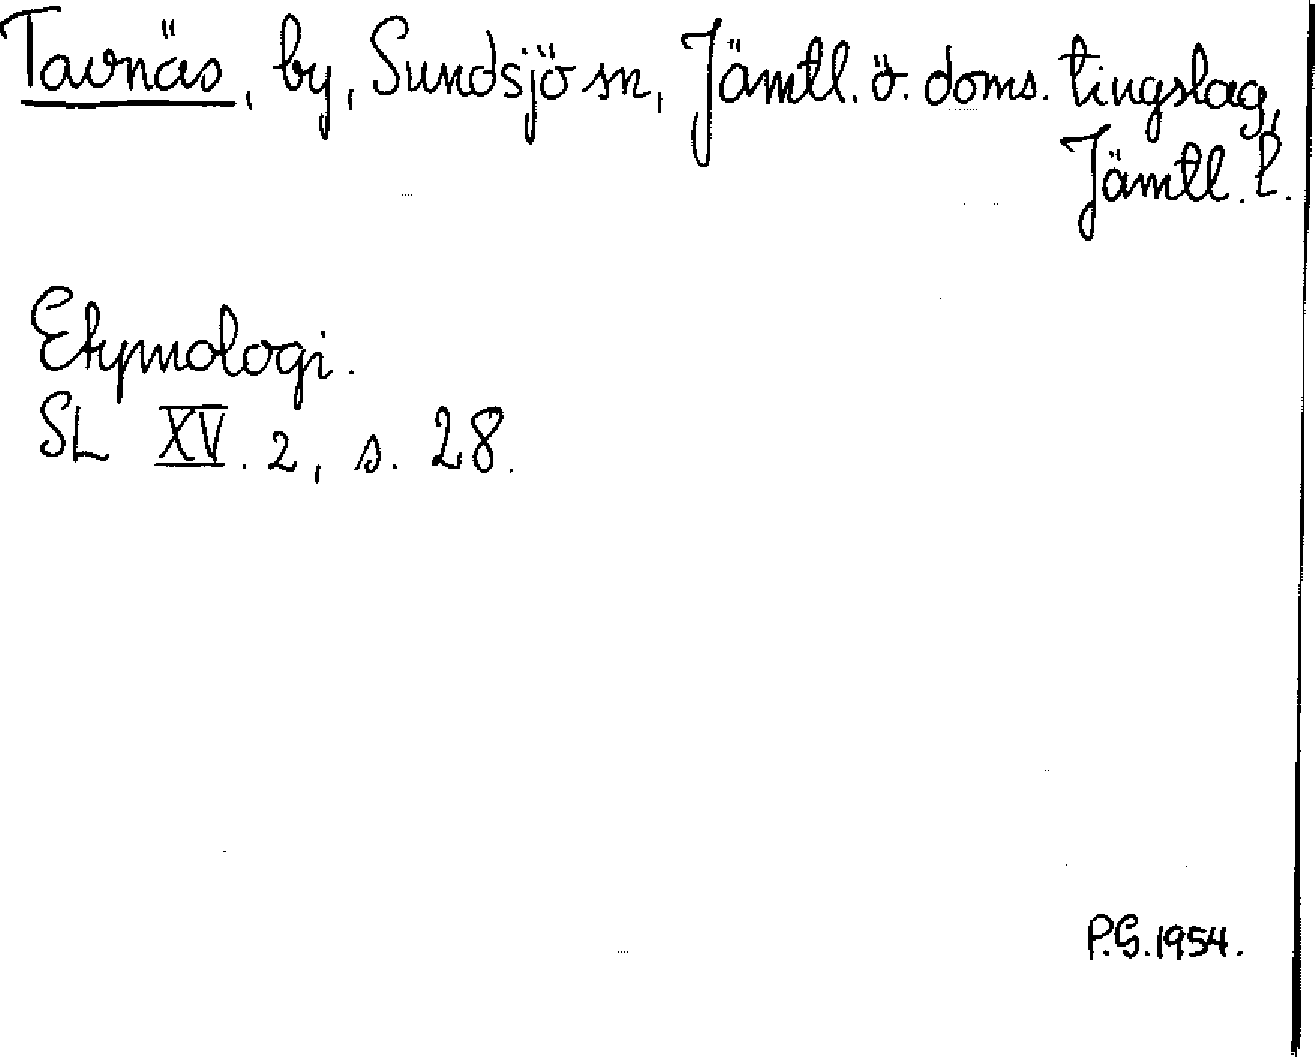 Tavnäs, by, Sundsjö sn, Jämtl. ö. doms. tingslag,
Jämtl. l.
Etymologi.
SL XV. 2, s. 28.
P.G. 1954.